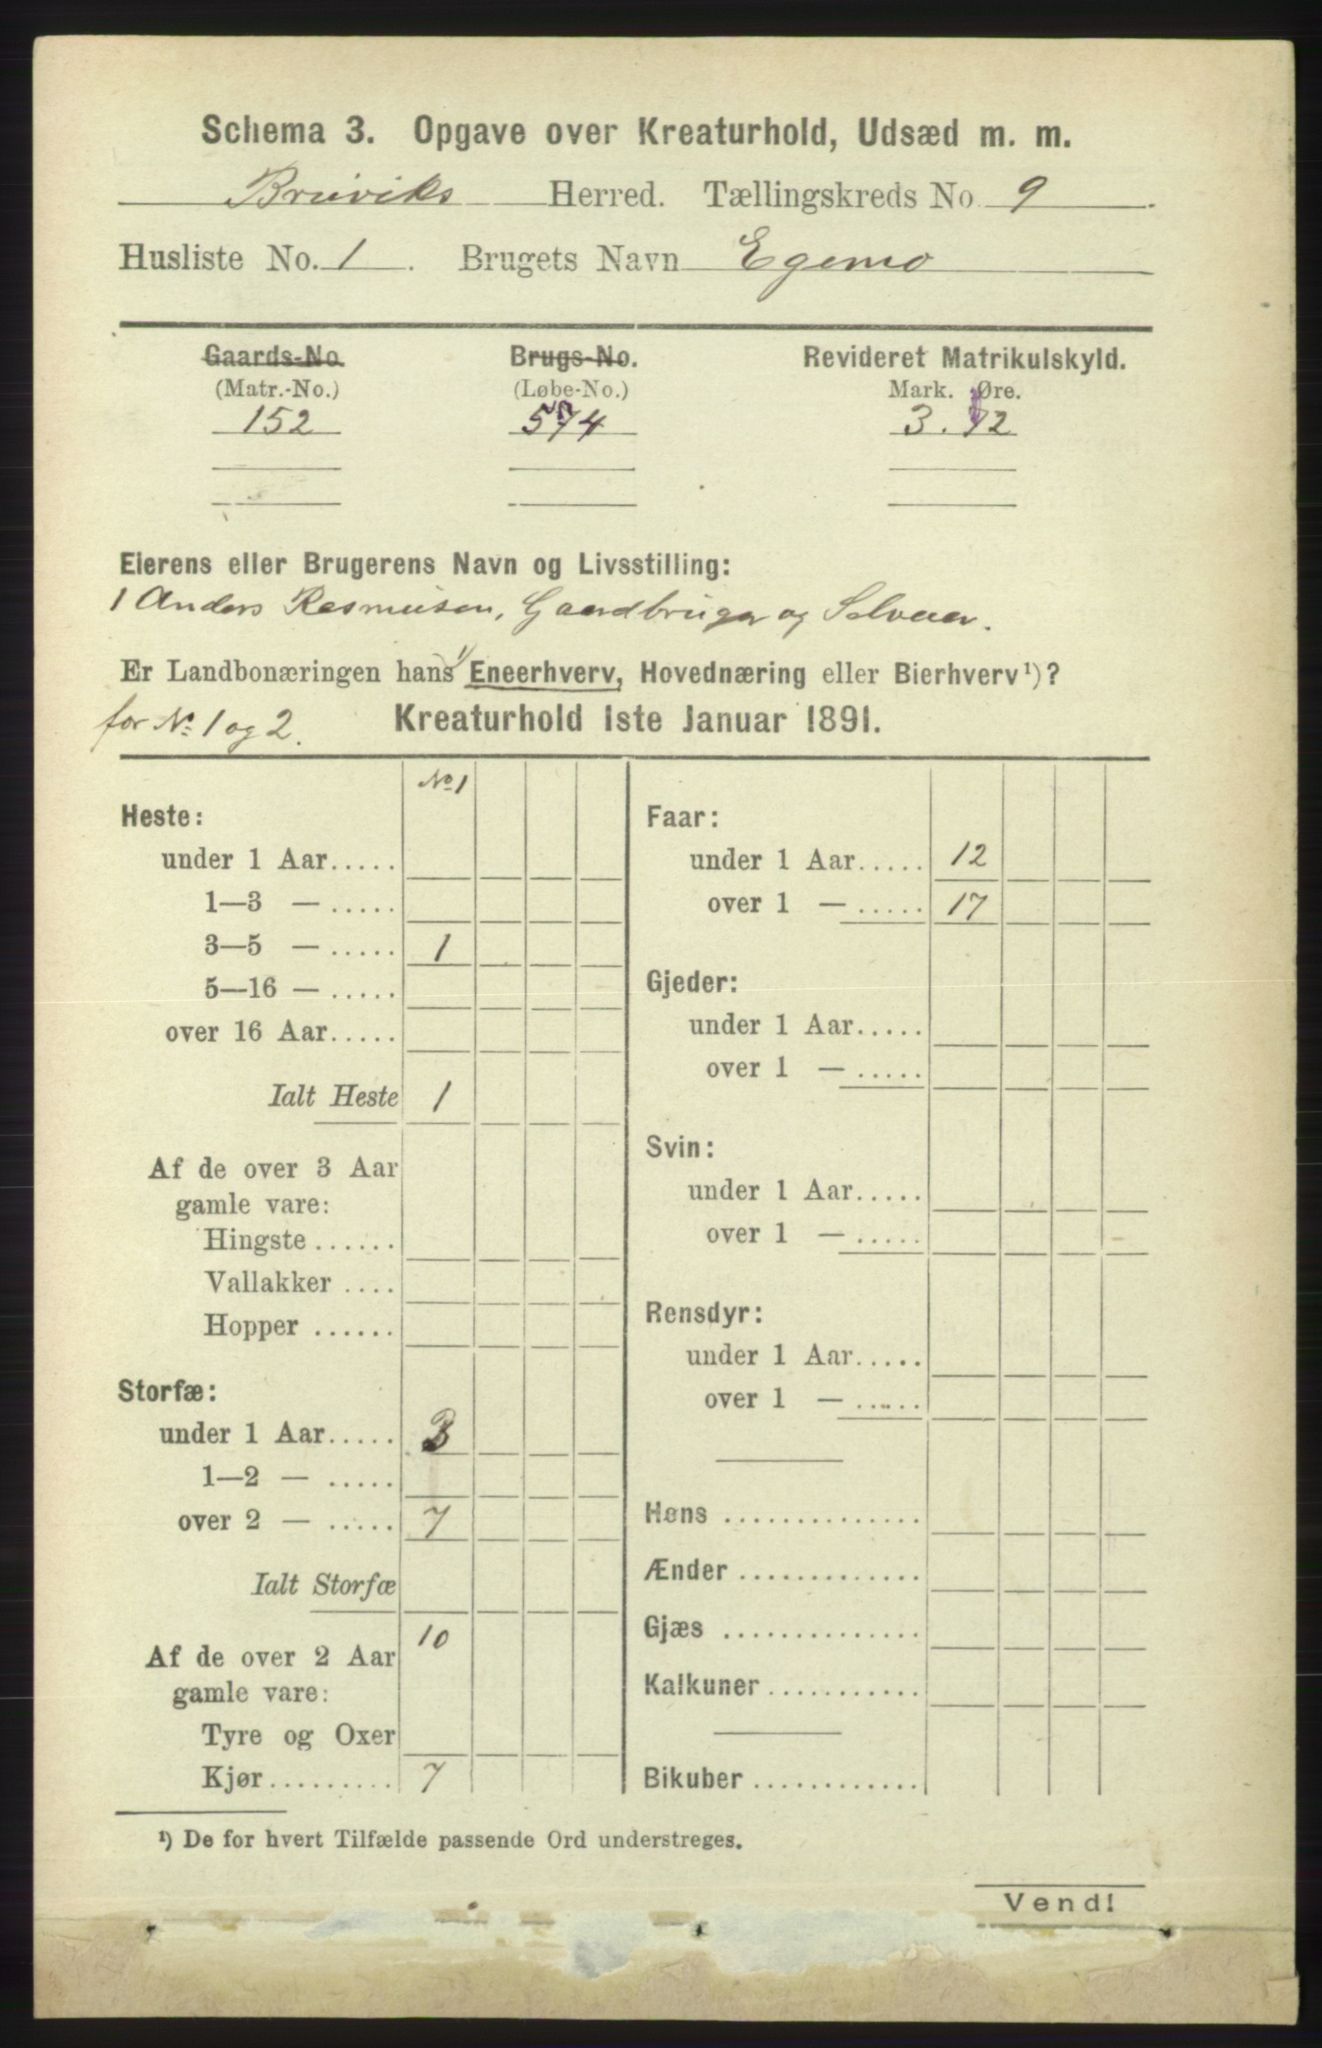 Schema 3. Opgave over Kreaturhold, Udsæd m. m.
Bruviks Herred. Tællingskreds No 9.
Husliste No. 1. Brugets Navn Egemo
Gaards-No. Brugs-No. Revideret Matrikulskyld.
(Matr.-No.) (Løbe-No.) Mark. Øre.
152 574 3.
Eierens eller Brugerens Navn og Livsstilling:
1 Anders Rasmusen, Gaardbruger og Selveier.
Er Landbonæringen hans 1) Eneerhverv, Hovednæring eller Bierhverv ¹)?
for No 1 og 2. Kreaturhold 1ste Januar 1891.
No 1
Heste:
under 1 Aar.....
1—3 — .....
3—5 — ..... 1
5—16 — .....
over 16 Aar.....
Ialt Heste 1
Af de over 3 Aar
gamle vare:
Hingste ......
Vallakker ....
Hopper ......
Storfæ:
under 1 Aar..... 3
1—2 — .....
over 2 — ..... 7
Ialt Storfæ
10
Af de over 2 Aar
gamle vare:
Tyre og Oxer
Kjør......... 7
Faar:
under 1 Aar..... 12
over 1 — ..... 17
Gjeder:
under 1 Aar.....
over 1 — .....
Svin:
under 1 Aar.....
over 1 — .....
Rensdyr:
under 1 Aar.....
over 1 — .....
Høns ..............
Ænder .............
Gjæs ..............
Kalkuner...........
Bikuber .............
¹) De for hvert Tilfælde passende Ord understreges.
Vend!